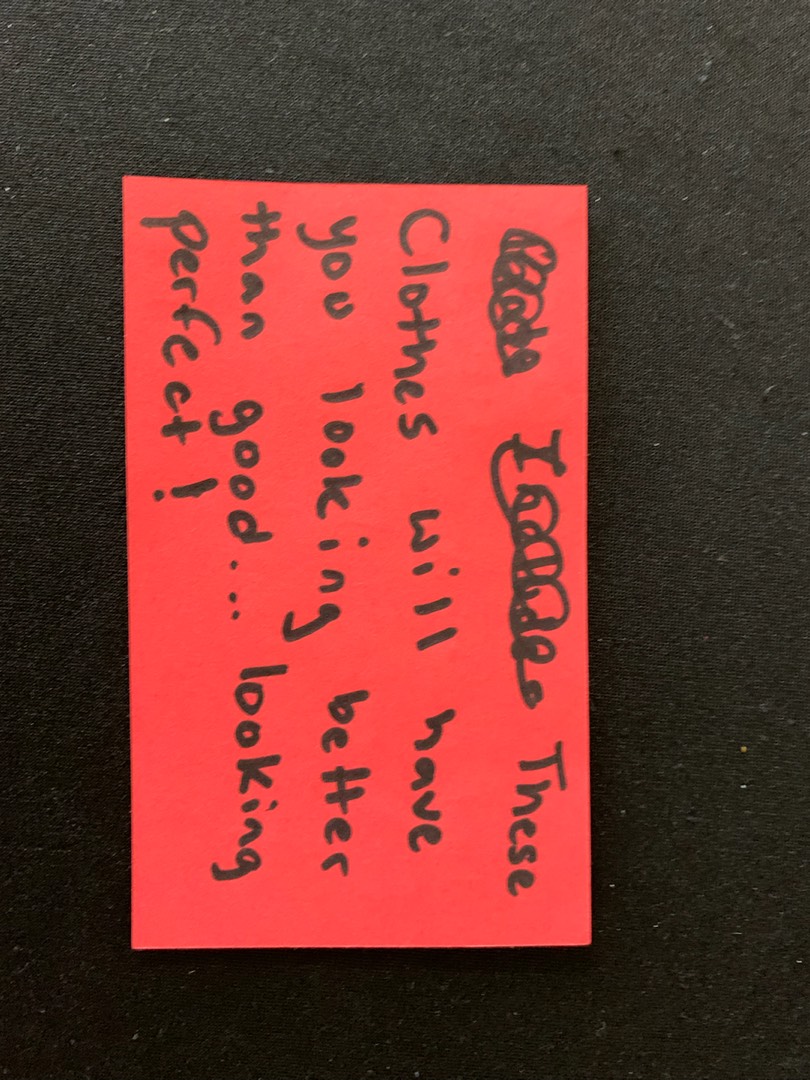 These
Clothes will have
you looking better
than good... looking
perfect!